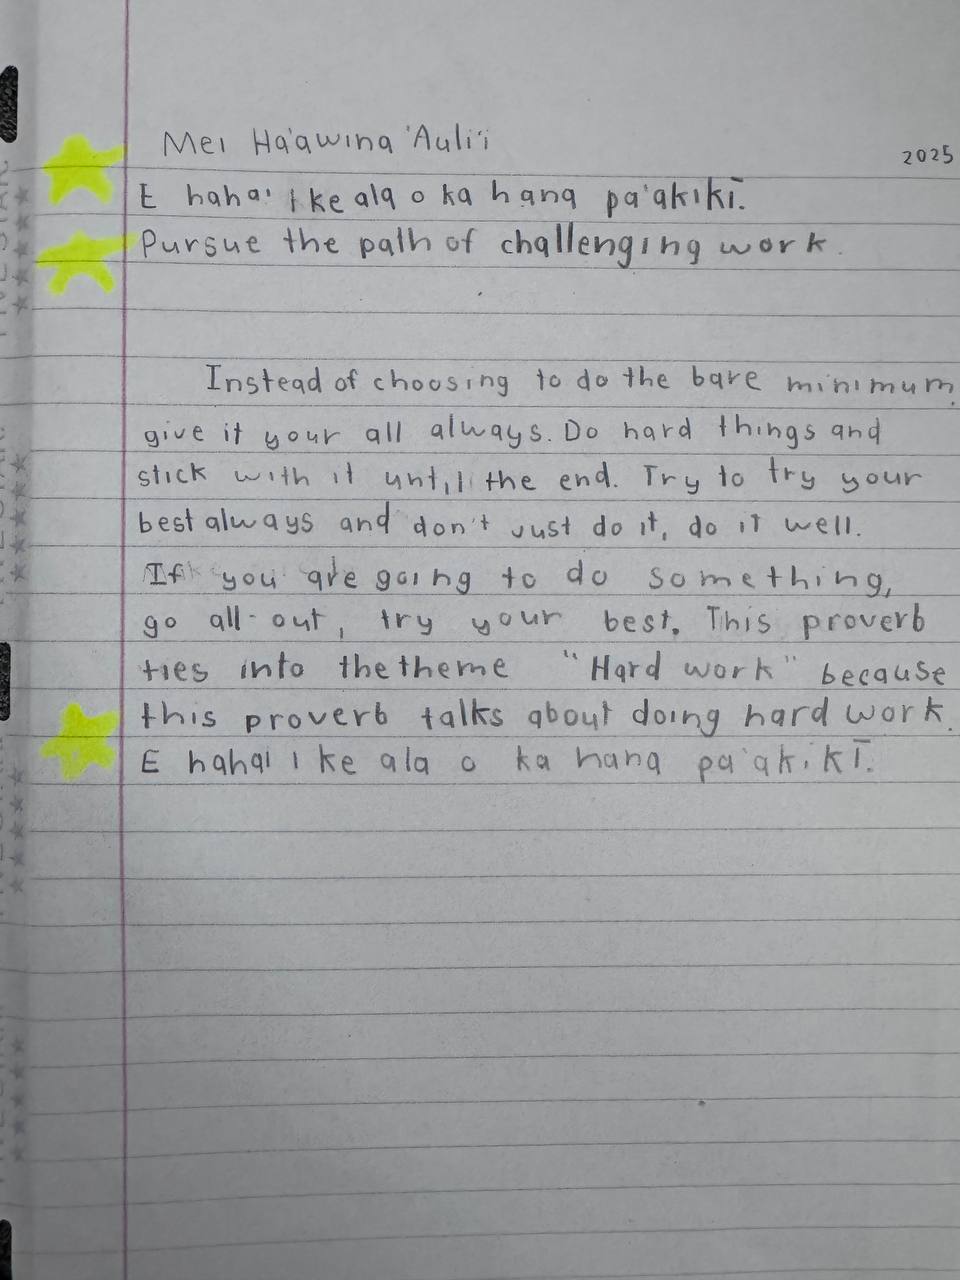 Mei Ha'awina 'Auli'i
2025
E hahai i ke ala o ka hana pa'akikī.
Pursue the path of challenging work.
Instead of choosing to do the bare minimum,
give it your all always. Do hard things and
stick with it until the end. Try to try your
best always and don't just do it, do it well.
If you are going to do something,
go all-out, try your best. This proverb
ties into the theme "Hard work" because
this proverb talks about doing hard work.
E hahai i ke ala o ka hana pa'akikī.